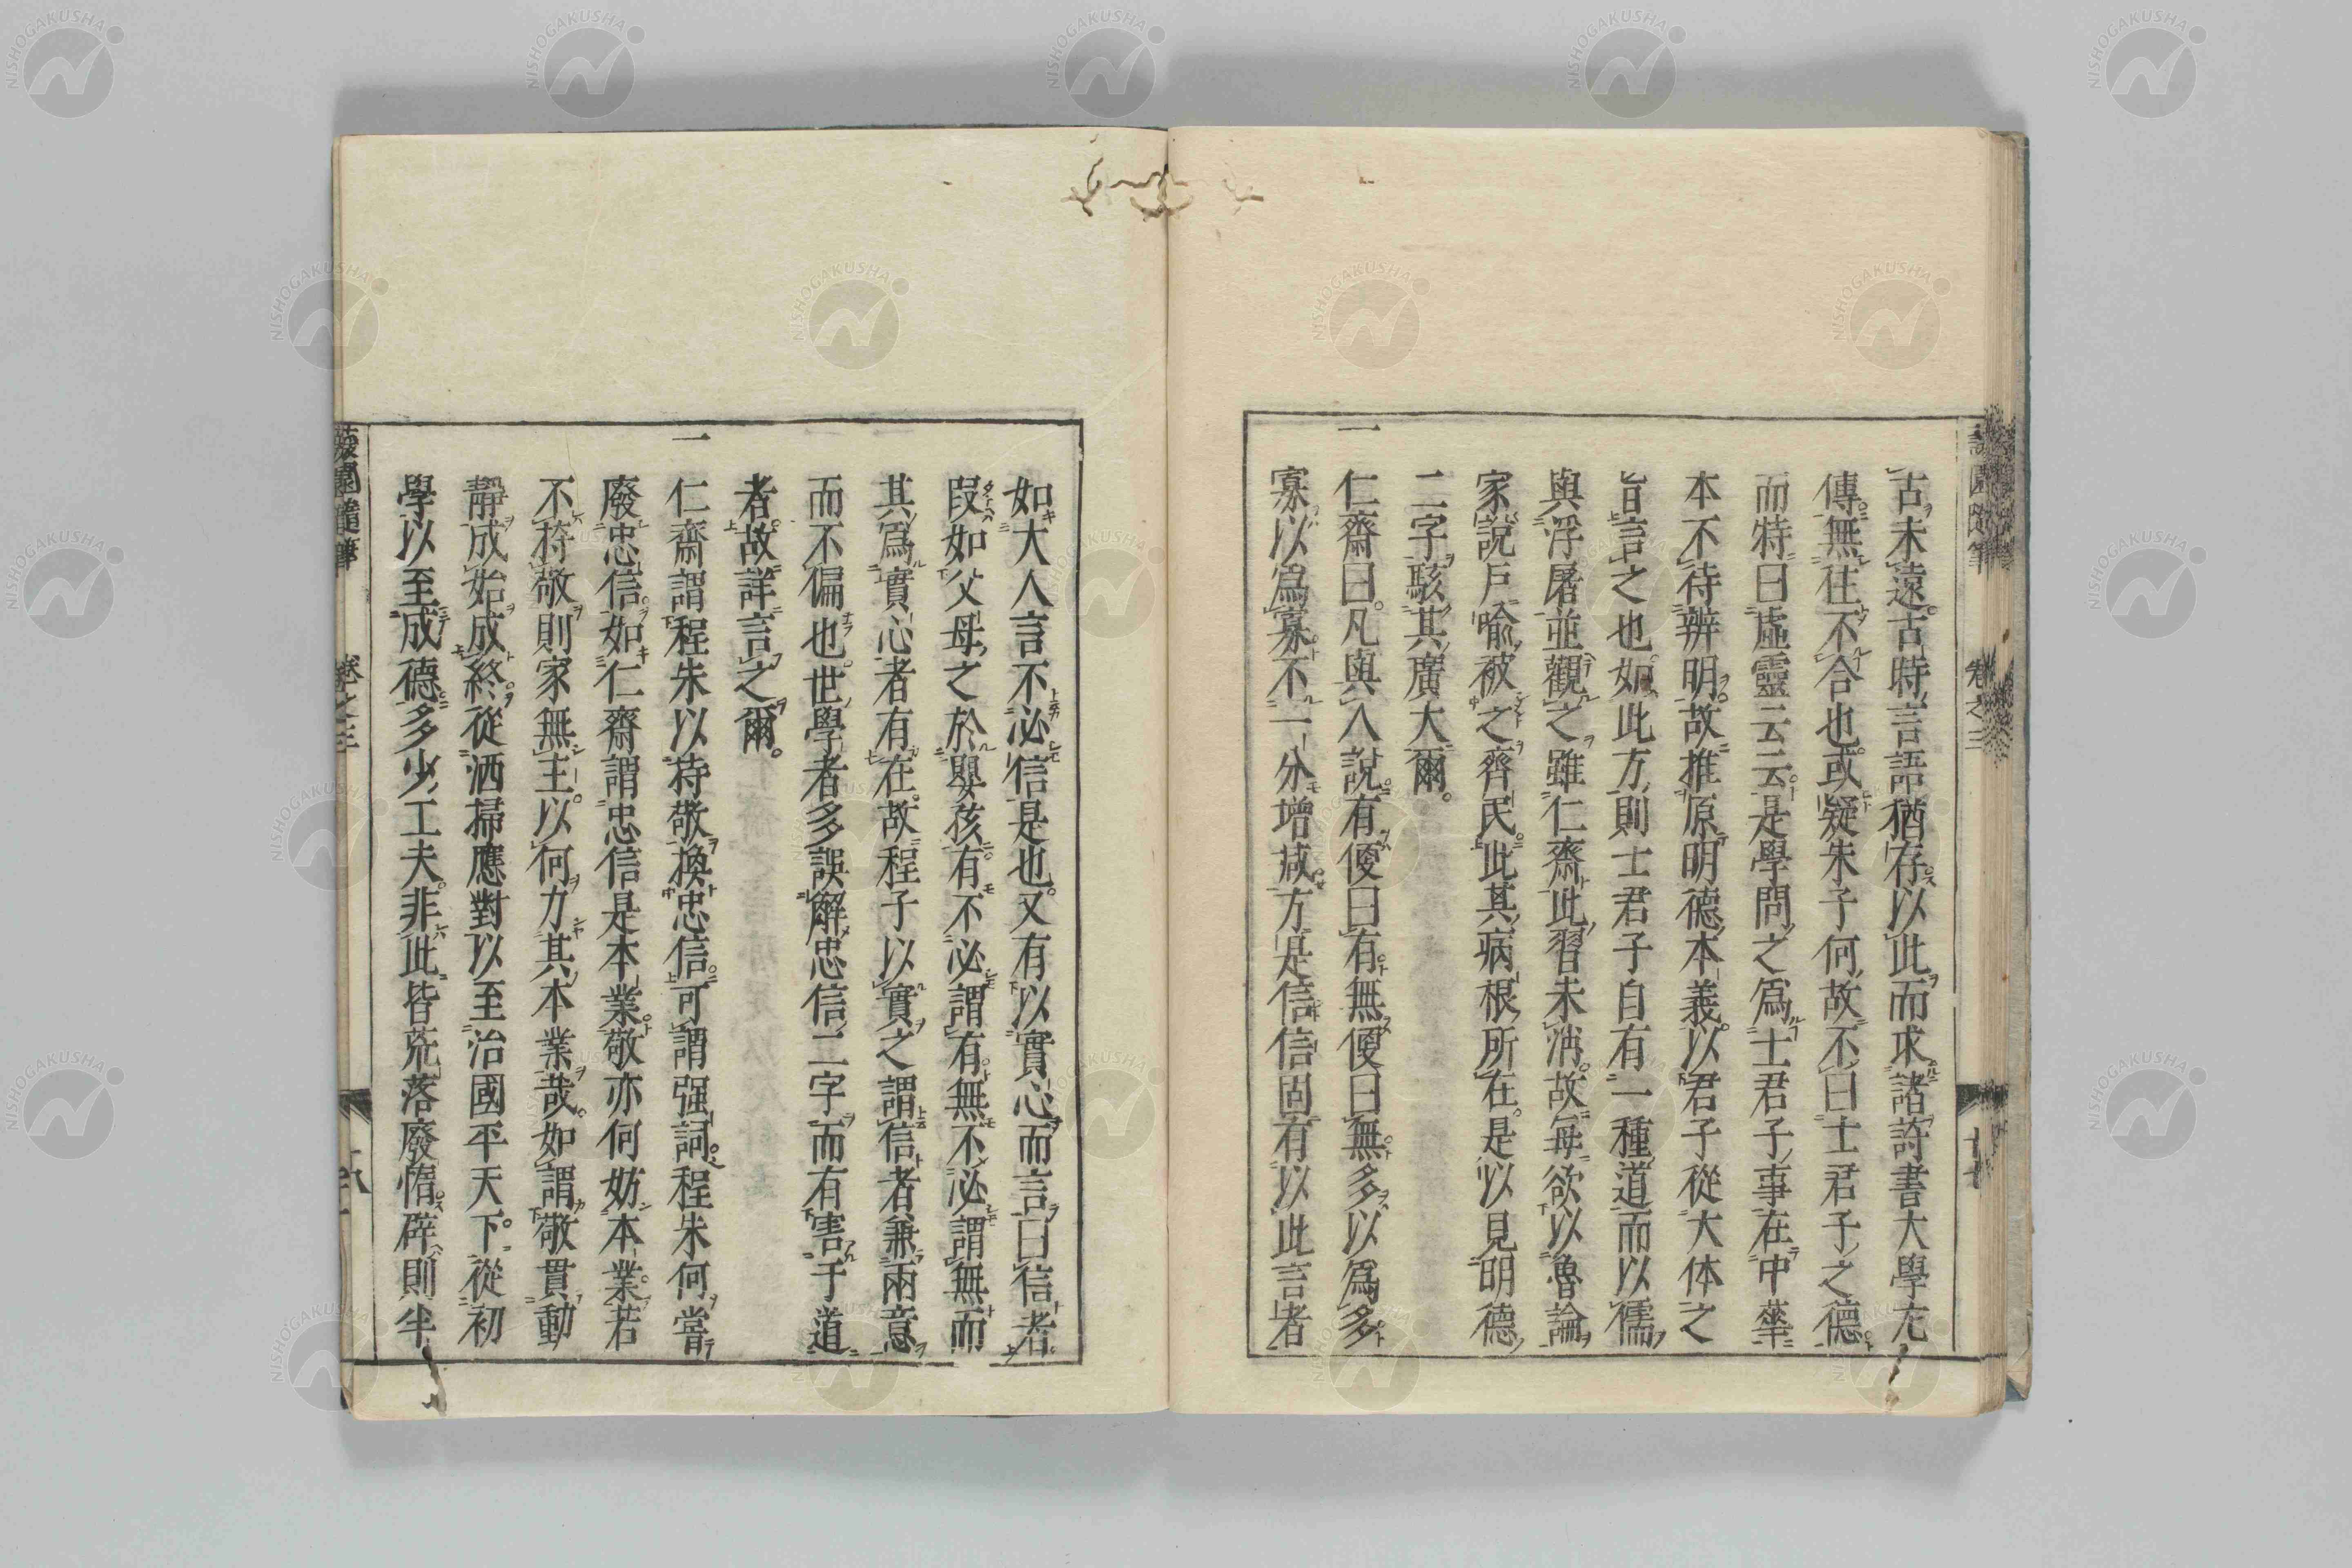 古未遠古時言語猶存以此而求諸詩書大學左
傳無往不合也或疑朱子何故不曰士君子之德
而特曰虛靈云云是學問之爲士君子事在中華
本不待辨明故推原明德本義以君子從大体之
旨言之也如此方則士君子自有一種道而以儒
與浮屠並觀之雖仁齋此習未淌故每欲以魯論
家說戶喩被之齊民此其病根所在是以見明德
二字駭其廣大爾
一仁齋曰凡與人說有便曰有無便曰無多以爲多
寡以爲寡不一分增减方是信信固有以此言者
如大人言不必信是也又有以實心而言曰信者
叚如父母之於嬰孩有不必謂有無不必謂無而
其爲實心者有在故程子以實之謂信者兼兩意
而不偏也世學者多誤解忠信二字而有害于道
者故詳言之爾
一仁齋謂程朱以持敬換忠信可謂强詞程朱何嘗
廢忠信如仁齋謂忠信是本業敬亦何妨本業若
不持敬則家無主以何力其本業哉如謂敬貫動
靜成始成終從洒掃應對以至治國平天下從初
學以至成德多少工夫非此皆荒落廢惰辟則半
蘐園隨筆 卷之三 十七
蘐園隨筆 卷之三 十八
NISHOGAKUSHA